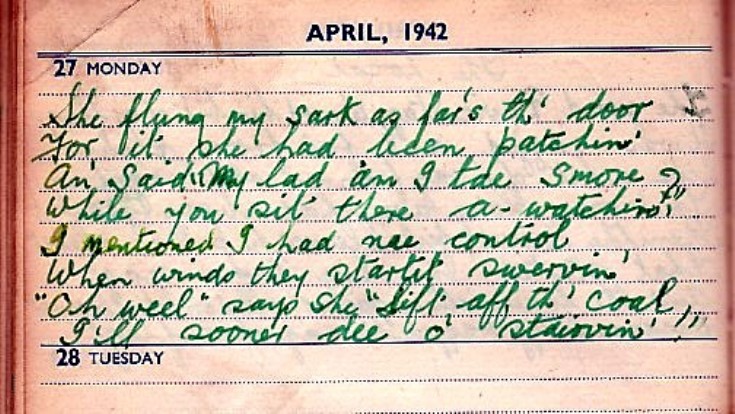 APRIL, 1942
27 MONDAY
She flung my sark as far's th' door
For it she had been patchin'
An' Said "My lad am I tae smore
While you sit there a-watchin?"
I mentioned I had nae control
When winds they startit swervin'
"Oh weel" says she "Lift aff th' coal,
I'll sooner dee o' stairvin'!!"
28 TUESDAY